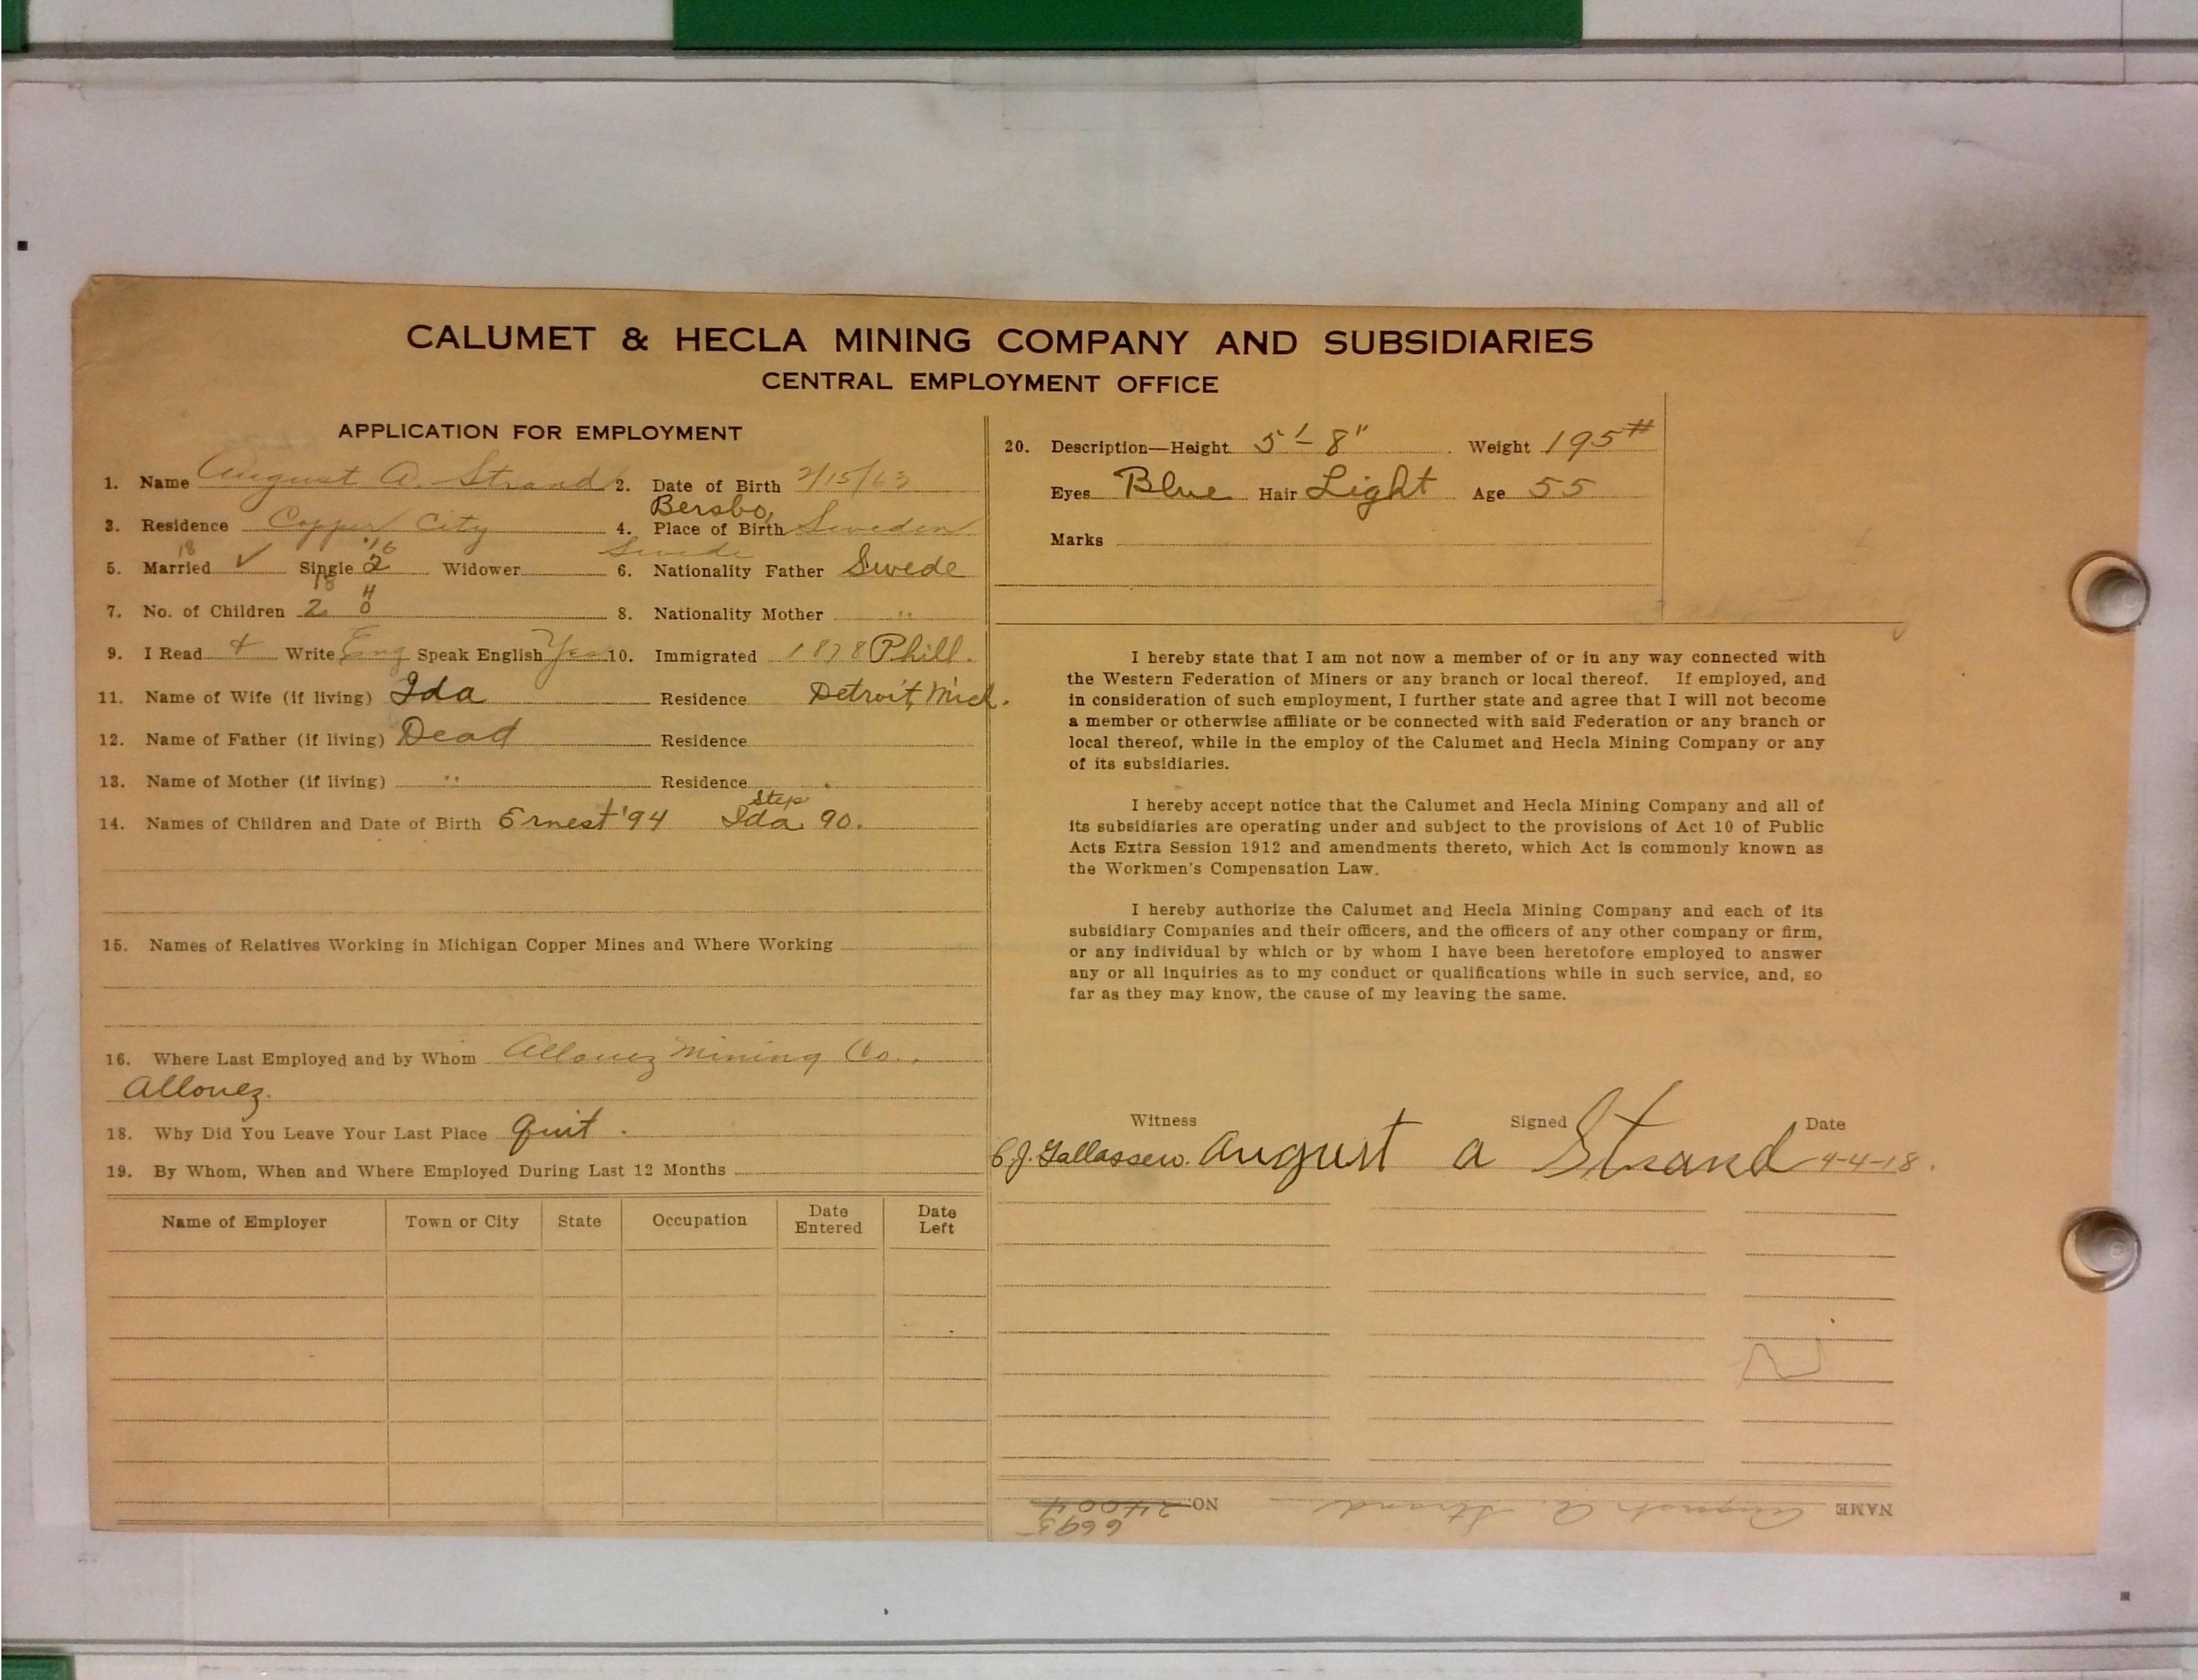 CALUMET & HECLA MINING COMPANY AND SUBSIDIARIES
CENTRAL EMPLOYMENT OFFICE
APPLICATION FOR EMPLOYMENT
1. Name August A. Strand 2. Date of Birth 2/15/63
Bersbo,
3. Residence Copper City 4. Place of Birth Sweden
18 '16 Swede
5. Married ✓ Single 2 Widower 6. Nationality Father Swede
18 H
7. No. of Children 2 0 8. Nationality Mother "
9. I Read + Write Eng Speak English Yes 10. Immigrated 1878 Phill.
11. Name of Wife (if living) Ida Residence Detroit, Mich.
12. Name of Father (if living) Dead Residence
13. Name of Mother (if living) " Residence
Step
14. Names of Children and Date of Birth Ernest '94 Ida 90.
15. Names of Relatives Working in Michigan Copper Mines and Where Working
16. Where Last Employed and by Whom Allouez Mining Co.,
Allouez.
18. Why Did You Leave Your Last Place quit.
19. By Whom, When and Where Employed During Last 12 Months
Name of Employer Town or City State Occupation Date Entered Date Left
20. Description—Height 5'-8" Weight 195#
Eyes Blue Hair Light Age 55
Marks
I hereby state that I am not now a member of or in any way connected with
the Western Federation of Miners or any branch or local thereof. If employed, and
in consideration of such employment, I further state and agree that I will not become
a member or otherwise affiliate or be connected with said Federation or any branch or
local thereof, while in the employ of the Calumet and Hecla Mining Company or any
of its subsidiaries.
I hereby accept notice that the Calumet and Hecla Mining Company and all of
its subsidiaries are operating under and subject to the provisions of Act 10 of Public
Acts Extra Session 1912 and amendments thereto, which Act is commonly known as
the Workmen's Compensation Law.
I hereby authorize the Calumet and Hecla Mining Company and each of its
subsidiary Companies and their officers, and the officers of any other company or firm,
or any individual by which or by whom I have been heretofore employed to answer
any or all inquiries as to my conduct or qualifications while in such service, and, so
far as they may know, the cause of my leaving the same.
Witness Signed Date
August a Strand 4-4-18.
NAME August A. Strand NO. 24004
6695